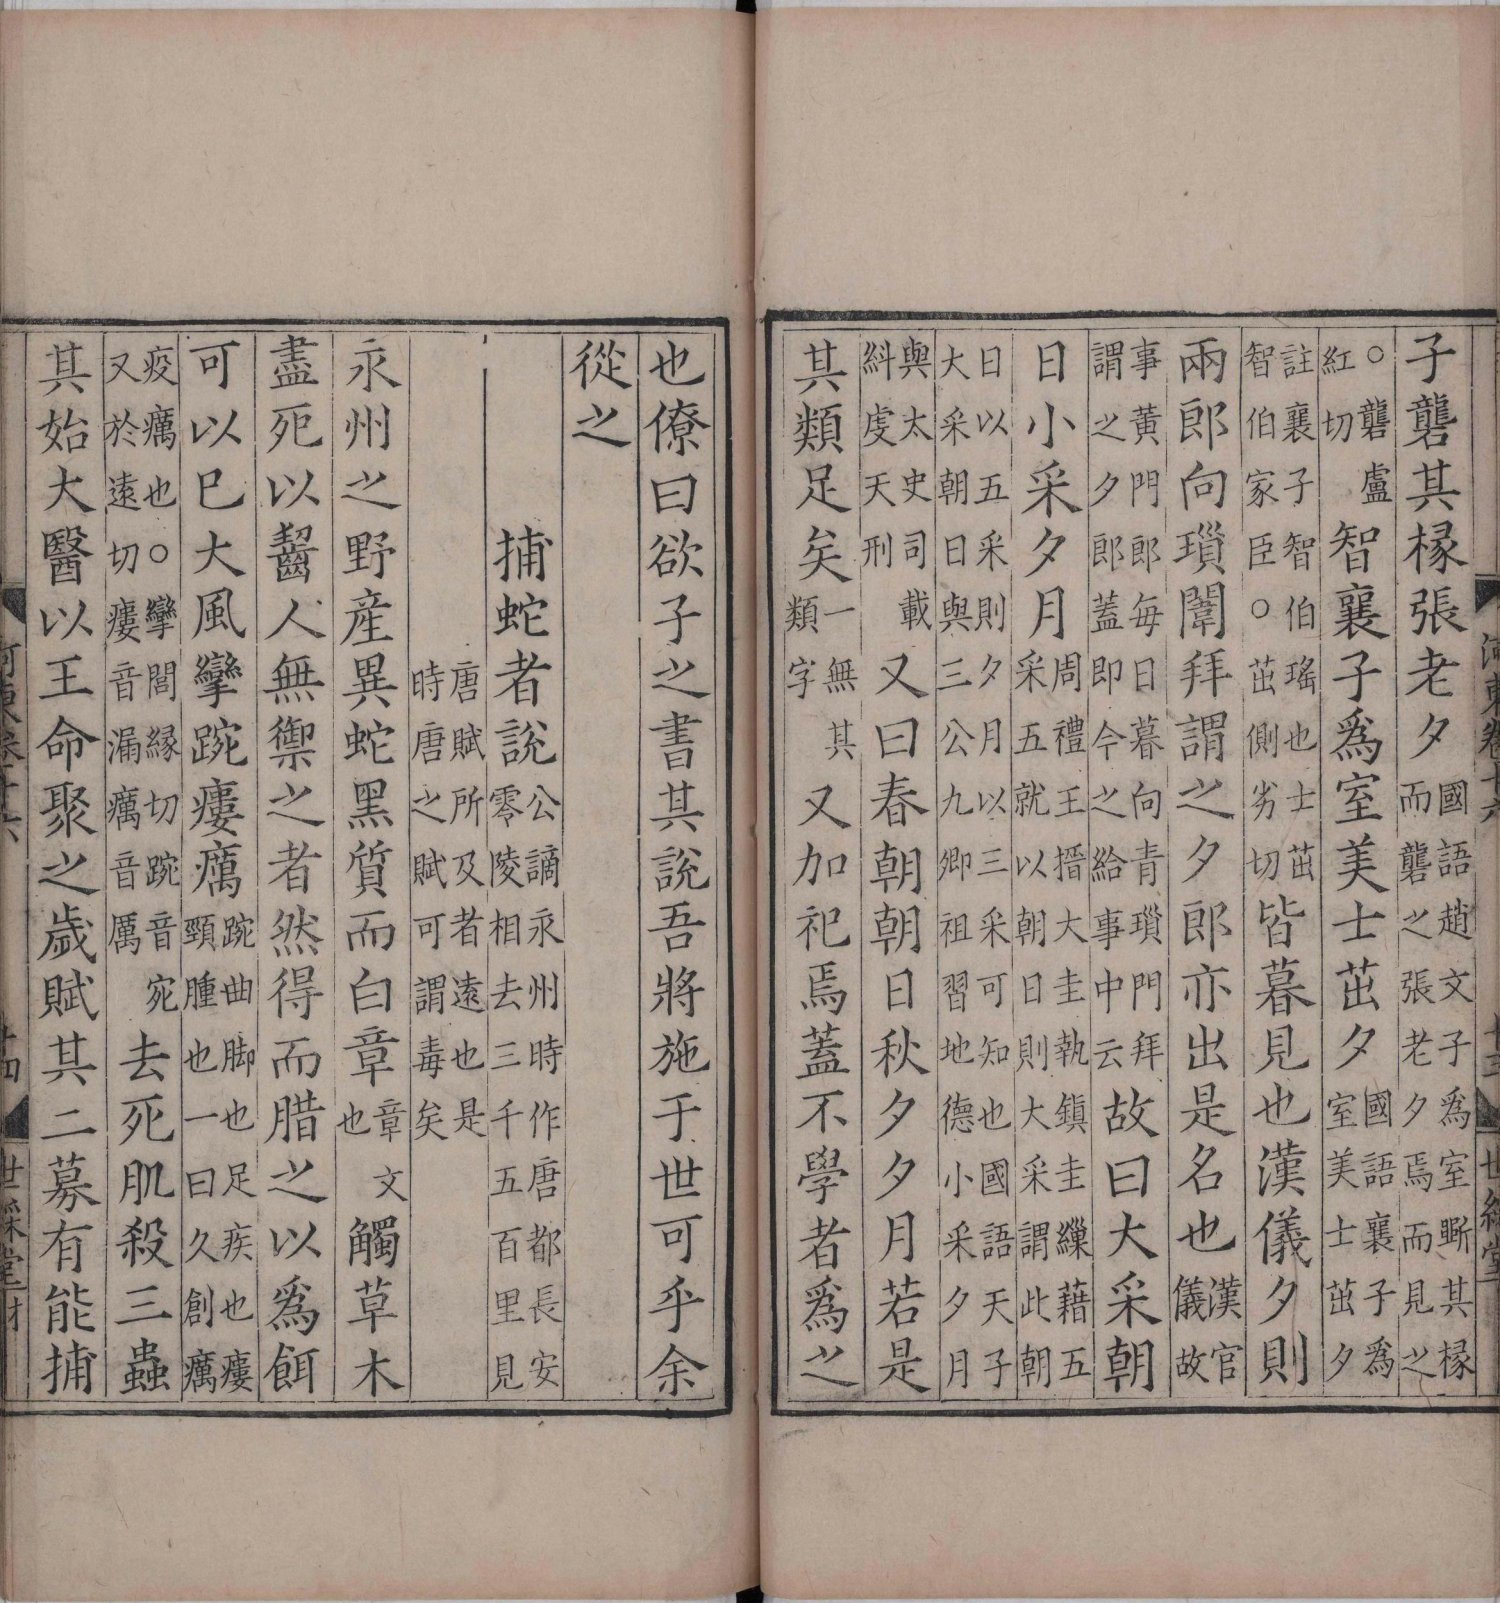 河東卷十六 十三 世綵堂
子礱其椽張老夕國語趙文子爲室斲其椽
而礱之張老夕焉而見之
○礱盧
紅切智襄子爲室美士茁夕國語襄子爲
室美士茁夕
註襄子智伯瑤也士茁
智伯家臣○茁側劣切皆暮見也漢儀夕則
兩郎向瑣闈拜謂之夕郎亦出是名也漢官
儀故
事黃門郎每日暮向青瑣門拜
謂之夕郎蓋即今之給事中云故曰大采朝
日小采夕月周禮王搢大圭執鎮圭繅藉五
采五就以朝日則大采謂此朝
日以五采則夕月以三采可知也國語天子
大采朝日與三公九卿祖習地德小采夕月
與太史司載
糾虔天刑又曰春朝朝日秋夕夕月若是
其類足矣一無其
類字又加祀焉蓋不學者爲之
也僚曰欲子之書其說吾將施于世可乎余
從之
捕蛇者說公謫永州時作唐都長安
零陵相去三千五百里見
唐賦所及者遠也是
時唐之賦可謂毒矣
永州之野產異蛇黑質而白章章文
也觸草木
盡死以齧人無禦之者然得而腊之以爲餌
可以巳大風攣踠瘻癘踠曲脚也足疾也瘻
頸腫也一曰久創癘
疫癘也○攣閭縁切踠音宛
又於遠切瘻音漏癘音厲去死肌殺三蟲
其始大醫以王命聚之歲賦其二募有能捕
河東卷十六 十四 世綵堂